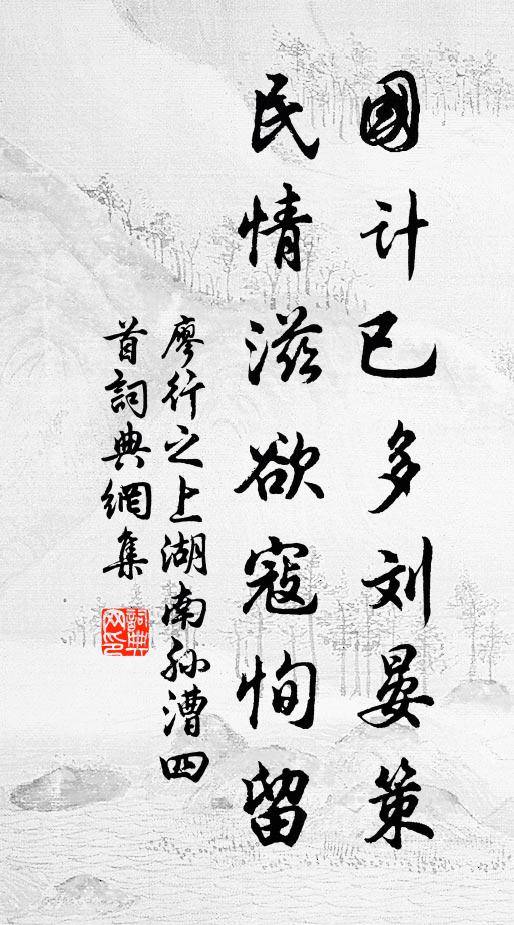 國计已多刘晏策
民情滋欲寇恂留
廖行之上湖南孙漕四
首詞典網集
詞典
网印